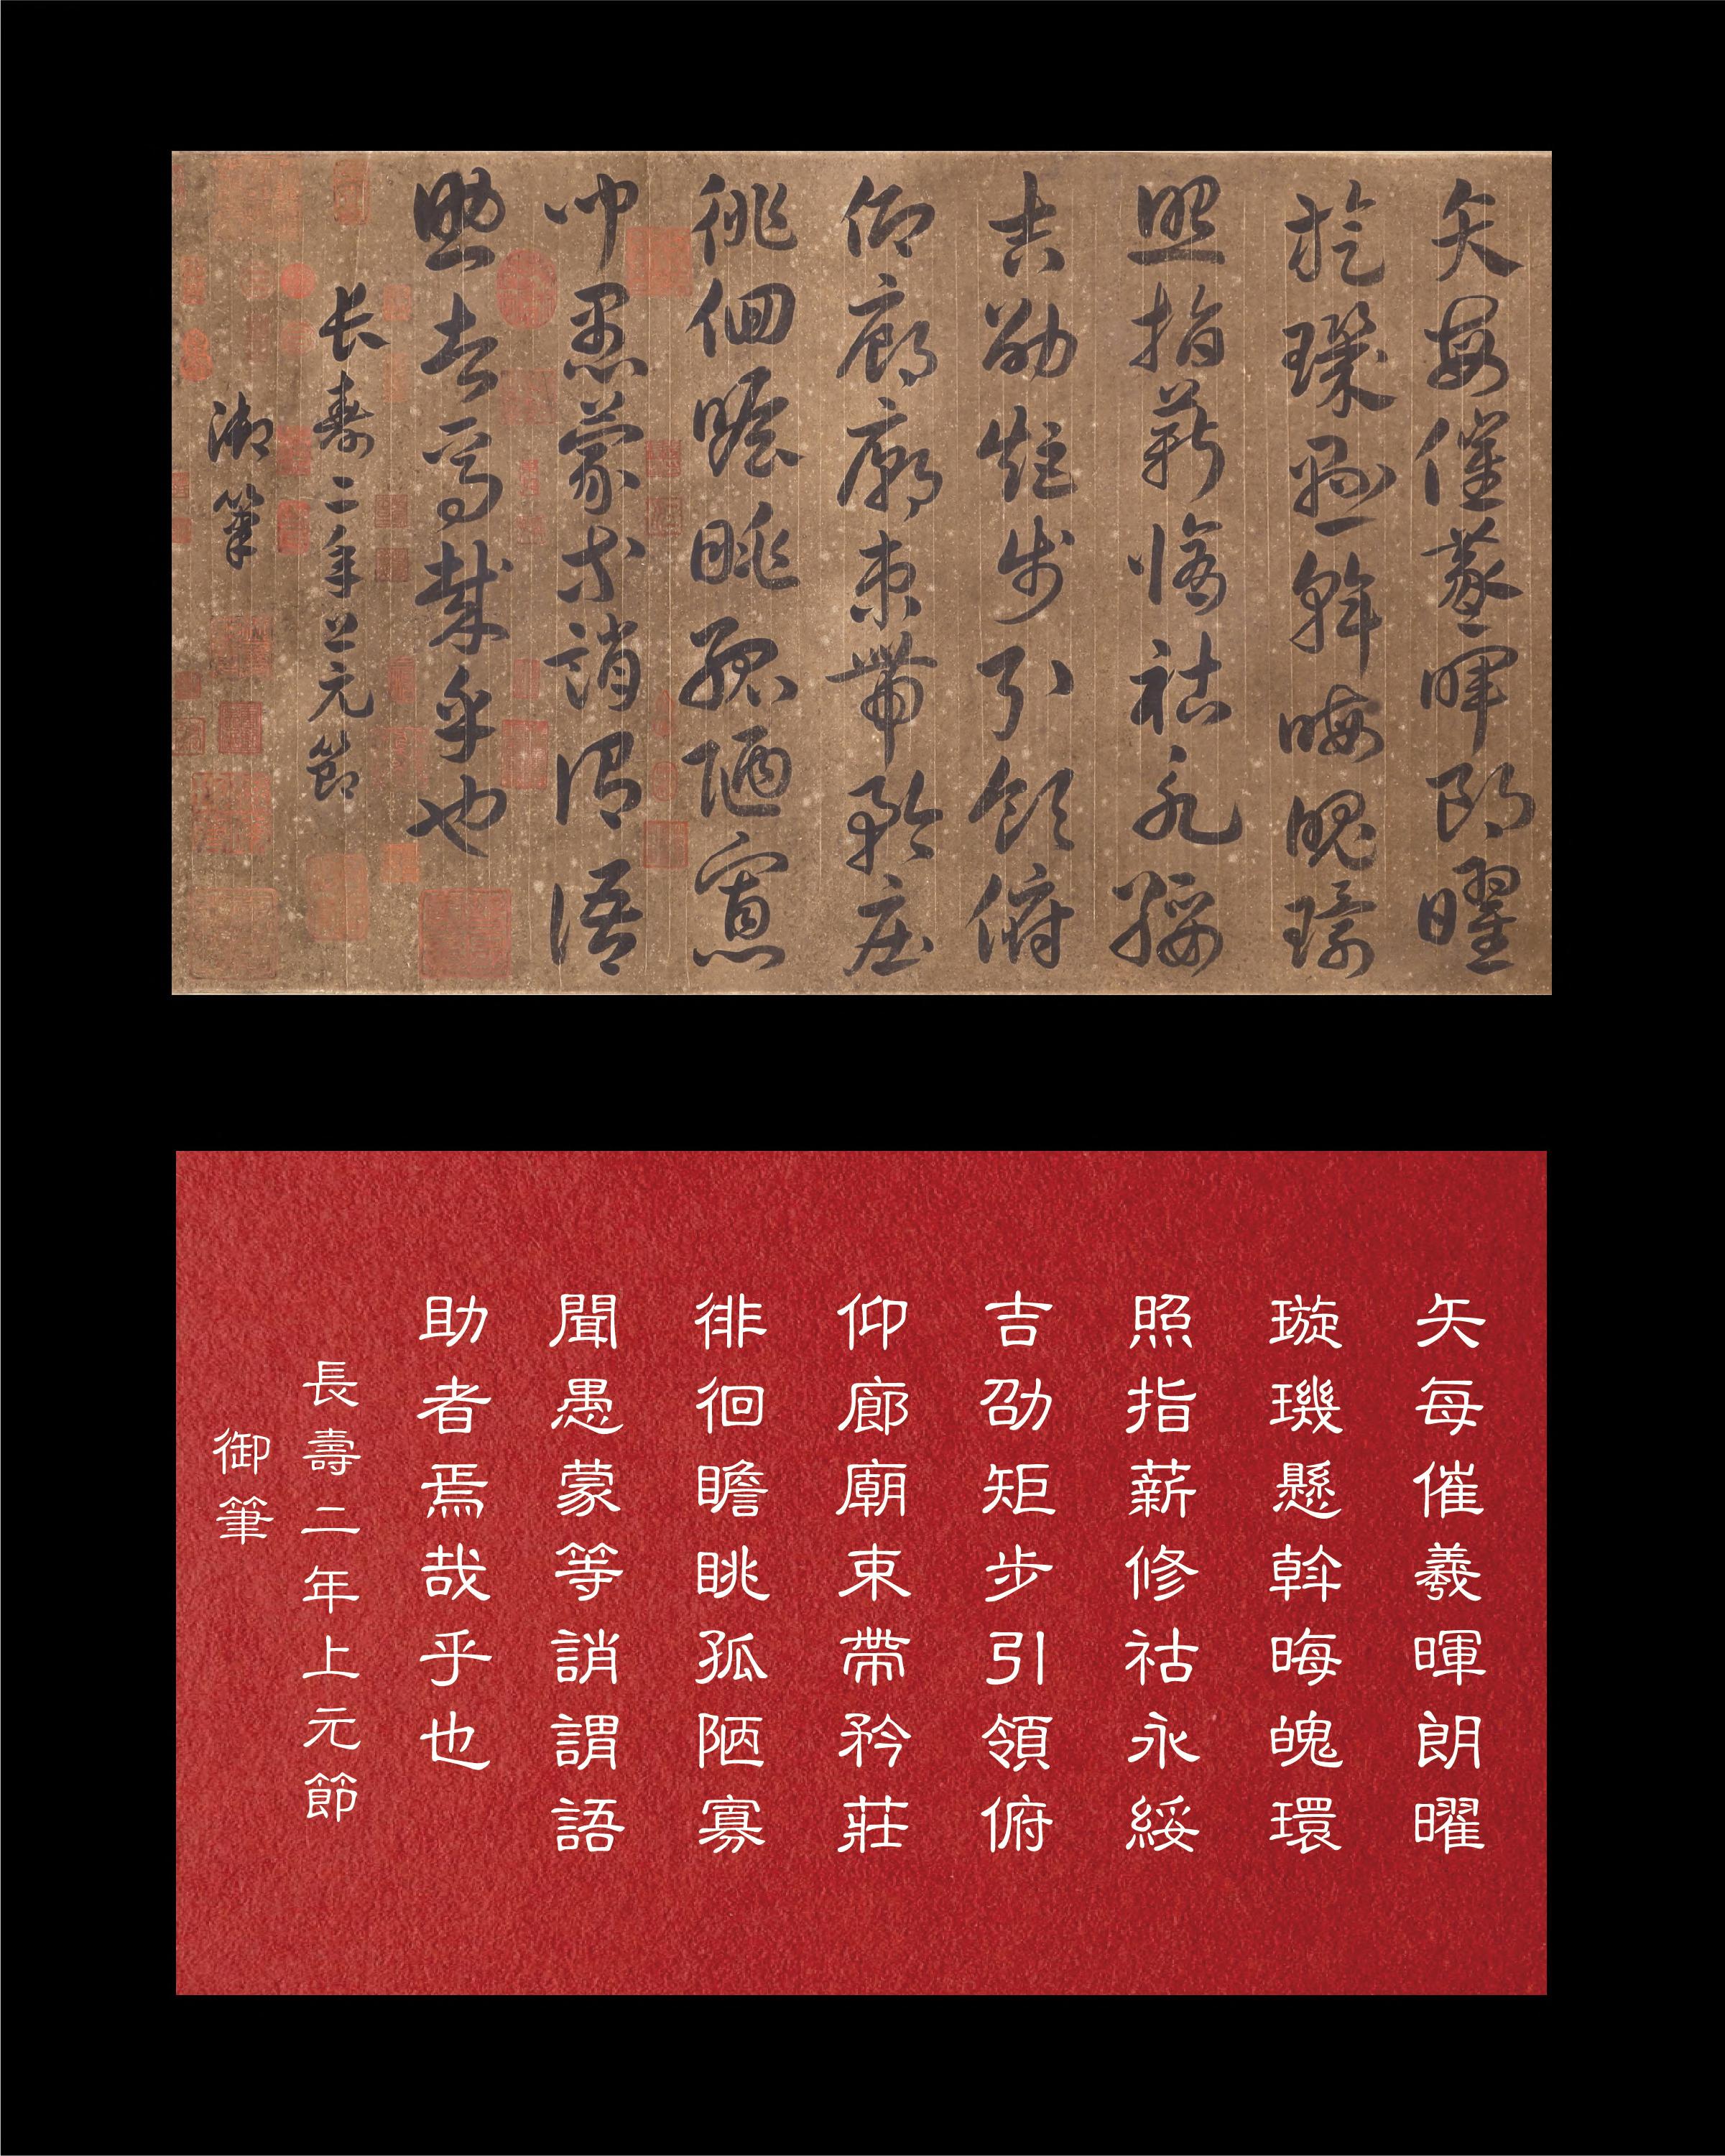 矢每催羲暉朗曜
旋璣懸斡晦魄環
照指薪修祜永綏
吉劭矩步引領俯
仰廊廟束帶矜莊
徘徊瞻眺孤陋寡
聞愚蒙等誚謂語
助者焉哉乎也
長壽二年上元節
御筆
矢每催羲暉朗曜
璇璣懸斡晦魄環
照指薪修祜永綏
吉劭矩步引領俯
仰廊廟束帶矜莊
徘徊瞻眺孤陋寡
聞愚蒙等誚謂語
助者焉哉乎也
長壽二年上元節
御筆